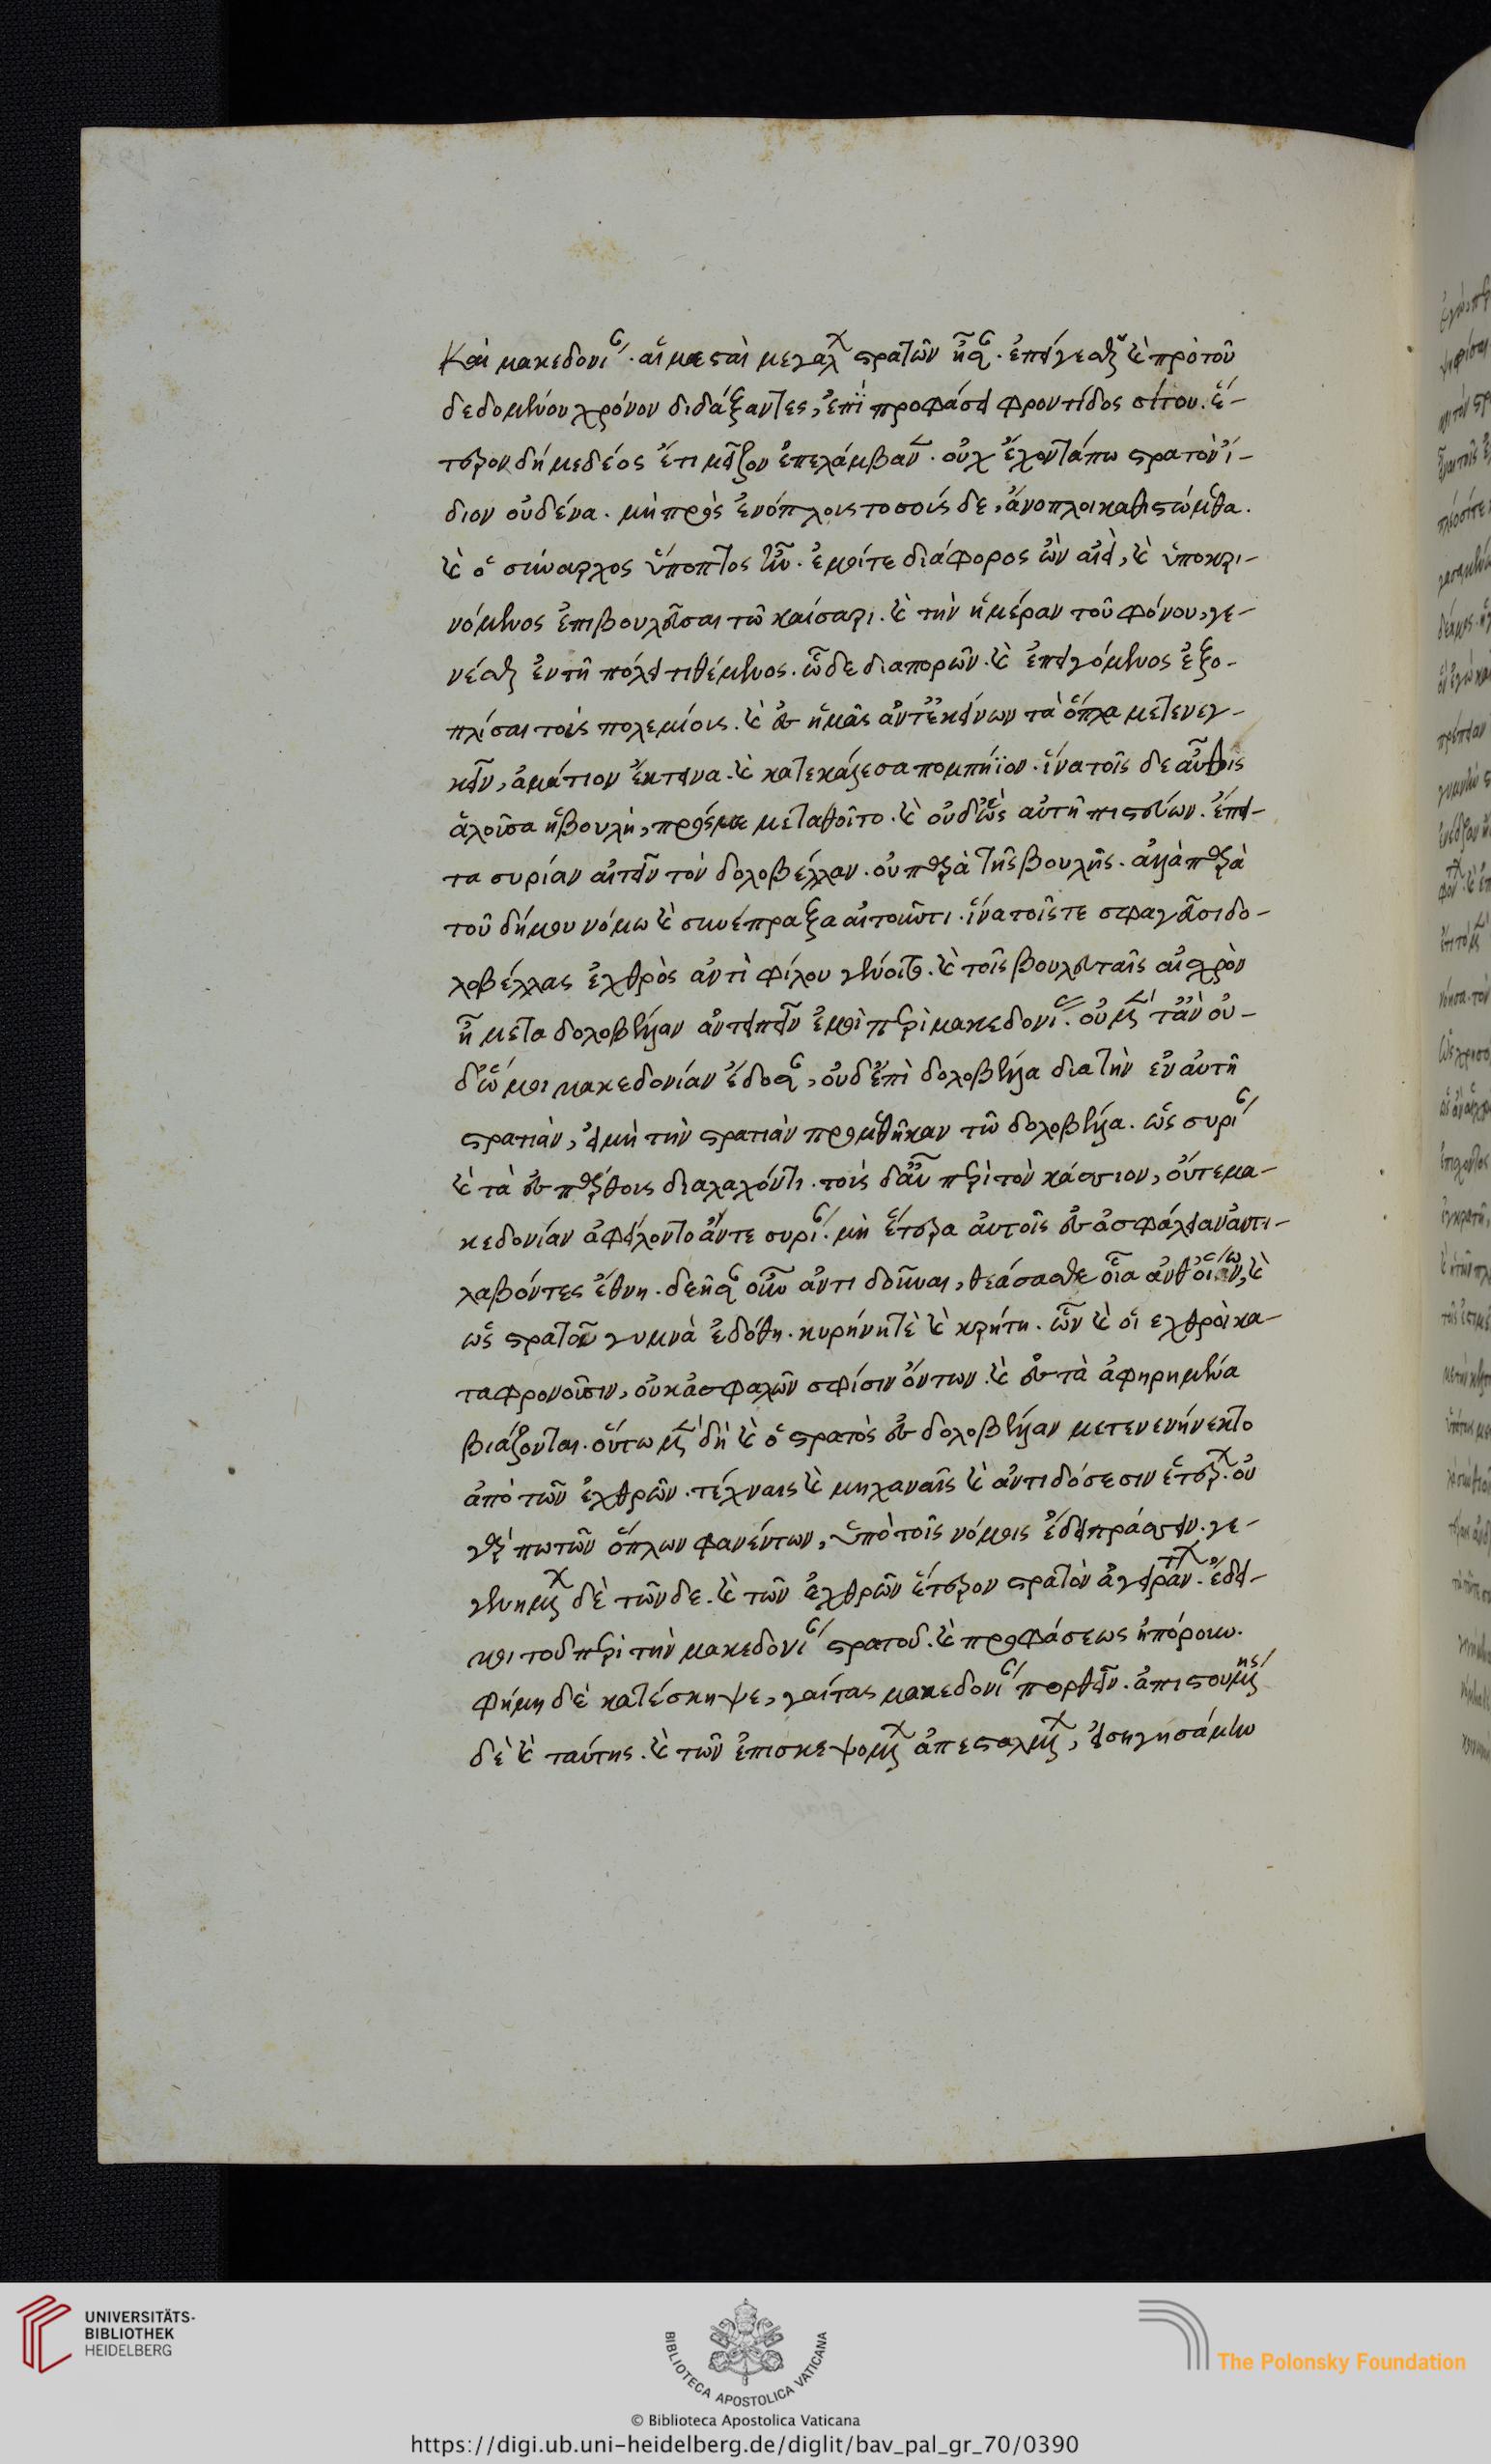 καὶ μακεδονίας. αἳ μεσταὶ μεγάλων στρατῶν ἦσαν. ἐπείγεσθαι καὶ πρὸ τοῦ
δεδομένου χρόνου διδάξαντες, ἐπὶ προφάσει φροντίδος σίτου. ἕ-
τερον δή με δέος ἔτι μεῖζον ἐπελάμβανεν. οὐχ ἔχοντά πω στρατὸν ἴ-
διον οὐδένα. μὴ πρὸς ἐνόπλοις τοσοῖσδε, ἄνοπλοι καθιστώμεθα.
καὶ ὁ σύναρχος ὕποπτος ἦν. ἐμοί τε διάφορος ὢν αἰεί, καὶ ὑποκρι-
νόμενος ἐπιβουλεῦσαι τῶ καίσαρι. καὶ τὴν ἡμέραν τοῦ φόνου, γε-
νέσθαι ἐν τῆ πόλει τιθέμενος. ὧδε διαπορῶν. καὶ ἐπειγόμενος ἐξο-
πλίσαι τοὺς πολεμίους. καὶ ἐς ἡμᾶς ἀντ' ἐκείνων τὰ ὅπλα μετενεγ-
κεῖν, ἀμάτιον ἔκτεινα. καὶ κατεκάλεσα πομπήϊον. ἵνα τοῖσδε αὖθις
ἁλοῦσα ἡ βουλὴ, πρός με μεταθοῖτο. καὶ οὐδ' ὣς αὐτῆ πιστεύων. ἔπει-
τα συρίαν αἰτεῖν τὸν δολοβέλλαν. οὐ παρὰ τῆς βουλῆς. ἀλλὰ παρὰ
τοῦ δήμου νόμω καὶ συνέπραξα αἰτοῦντι. ἵνα τοῖς τε σφαγεῦσι δο-
λοβέλλας ἐχθρὸς ἀντὶ φίλου γένοιτο. καὶ τοῖς βουλευταῖς αἰσχρὸν
ἦ μετὰ δολοβέλλαν ἀντειπεῖν ἐμοὶ περὶ μακεδονίας. οὐ μὲν τἂν οὐ-
δ' ὥς μοι μακεδονίαν ἔδοσαν, οὐδ' ἐπὶ δολοβέλλα διὰ τὴν ἐν αὐτῆ
στρατιὰν, εἰ μὴ τὴν στρατιὰν προμεθῆκαν τῶ δολοβέλλα. ὡς συρίας
καὶ τὰ ἐς πάρθους διαλαχόντι. τοὺς δ' αὖ περὶ τὸν κάσσιον, οὔτε μα-
κεδονίαν ἀφείλοντο ἂν τε συρίας. μὴ ἕτερα αὐτοῖς ἐς ἀσφάλειαν ἀντι-
λαβόντες ἔθνη. δεῆσαν οὖν ἀντιδοῦναι, θεάσασθε οἷα ἀνθ' οἵων, καὶ
ὡς στρατοῦ γυμνὰ ἐδόθη. κυρήνη τὲ καὶ κρήτη. ὧν καὶ οἱ ἐχθροὶ κα-
ταφρονοῦσιν, οὐκ ἀσφαλῶν σφίσιν ὄντων. καὶ ἐς τὰ ἀφηρημένα
βιάζονται. οὕτω μὲν δὴ καὶ ὁ στρατὸς ἐς δολοβέλλαν μετενενήνεκτο
ἀπὸ τῶν ἐχθρῶν. τέχναις καὶ μηχαναῖς καὶ ἀντιδόσεσιν ἑτέρων. οὐ
γάρ πω τῶν ὅπλων φανέντων, ὑπὸ τοῖς νόμοις ἔδει πράσσειν. γε-
γενημένων δὲ τῶνδε. καὶ τῶν ἐχθρῶν ἕτερον στρατὸν ἀγειράντων. ἔδει
μοι τοῦ περὶ τὴν μακεδονίαν στρατοῦ. καὶ προφάσεως ἠπόρουν.
φήμη δὲ κατέσκηψε, γαίτας μακεδονίαν πορθεῖν. ἀπιστουμένης
δὲ καὶ ταύτης. καὶ τῶν ἐπισκεψομένων ἀπεσταλμένων, εἰσηγησάμην
UNIVERSITÄTS-
BIBLIOTHEK
HEIDELBERG
BIBLIOTECA APOSTOLICA VATICANA
The Polonsky Foundation
© Biblioteca Apostolica Vaticana
https://digi.ub.uni-heidelberg.de/diglit/bav_pal_gr_70/0390